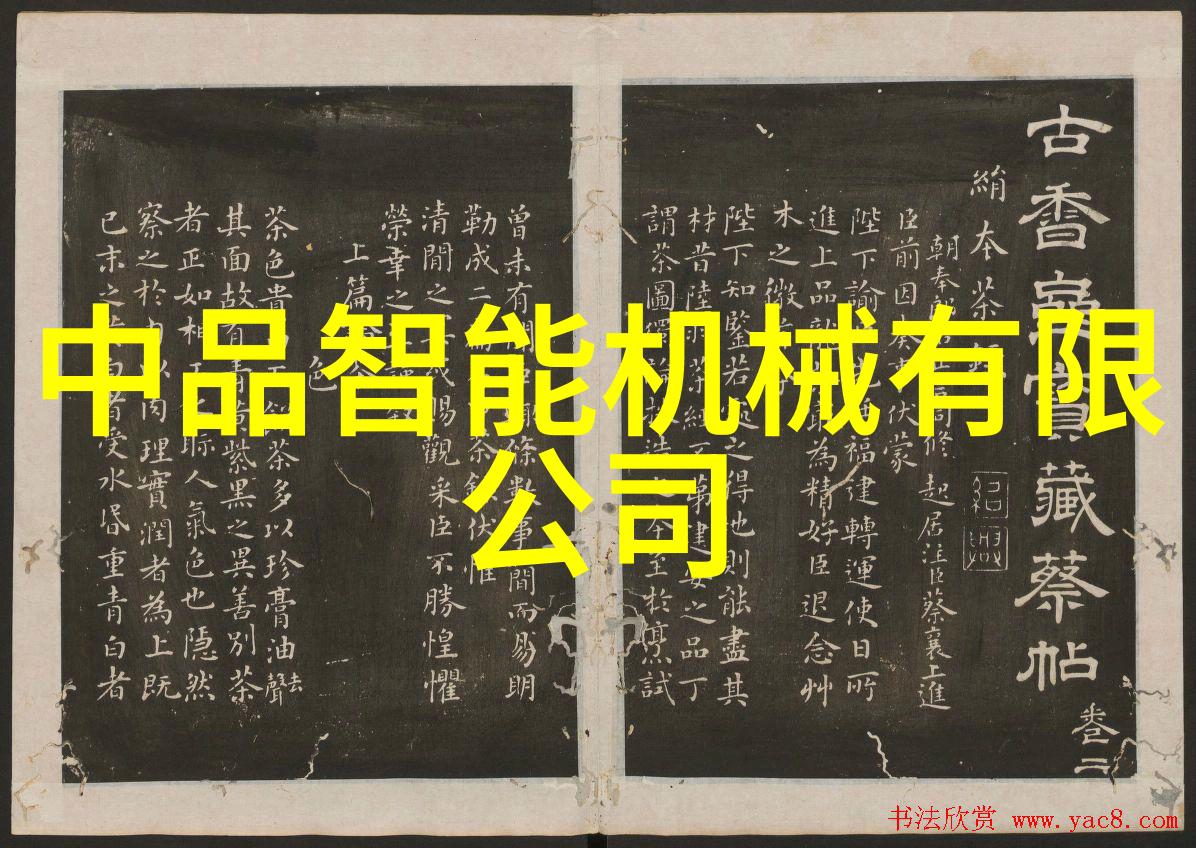 中品智能机械有限
公司
古香齋寶藏蔡帖
卷二
絹本茶
紹興
朝奉郎同修起居注臣蔡襄上進
臣前因奏事伏蒙
陛下諭福建轉運使日所
進上品龍最為精好臣退念艸
木之微
陛下知鑒若處之得地則能盡其
材昔陸羽茶經不第建安之品丁
謂茶圖獨論採造之本至於烹試
曾未有聞條數事簡而易明
勒成二茶錄伏惟
清閒之或賜觀采臣不勝惶懼
榮幸之至謹
上篇
色
茶色貴茶多以珍膏油去聲
其面故有青黃紫黑之異善別茶
者正如相眎人氣色也隱然
察之於內以肉理實潤者為上既
已末之白者受水昏重青白者
书法欣赏 www.yac8.com